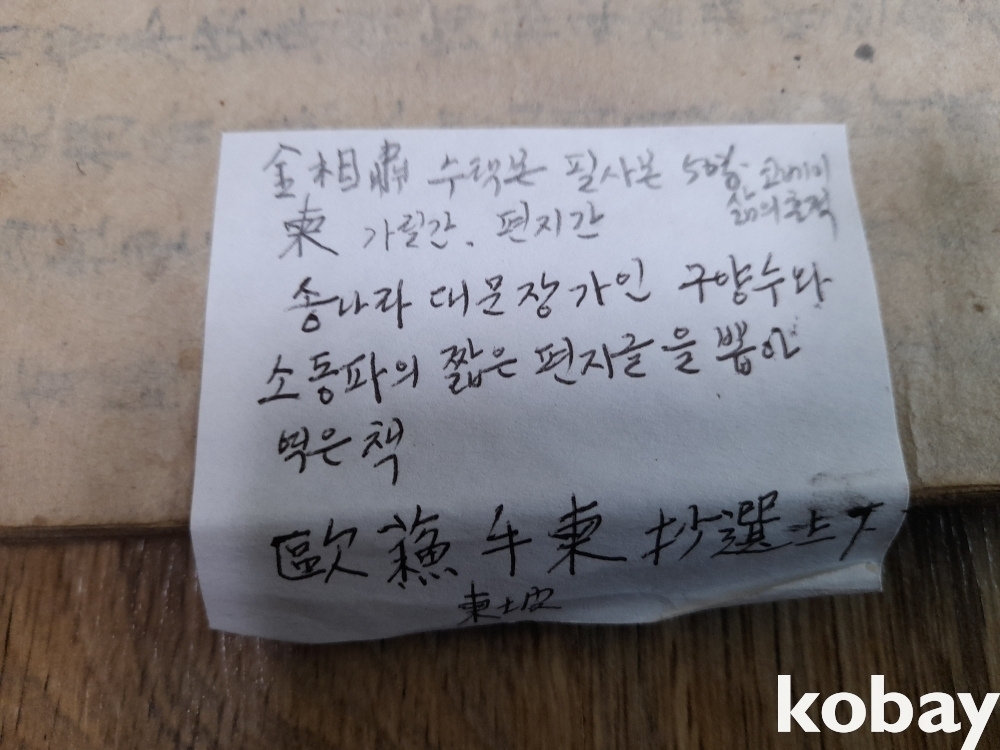 金相肅 수택본 필사본 50장. 코베이
삶의흔적
柬 가릴간, 편지간
송나라 대문장가인 구양수와
소동파의 짧은 편지글을 뽑아
엮은 책
歐蘇手柬 抄選 上下
東坡
kobay